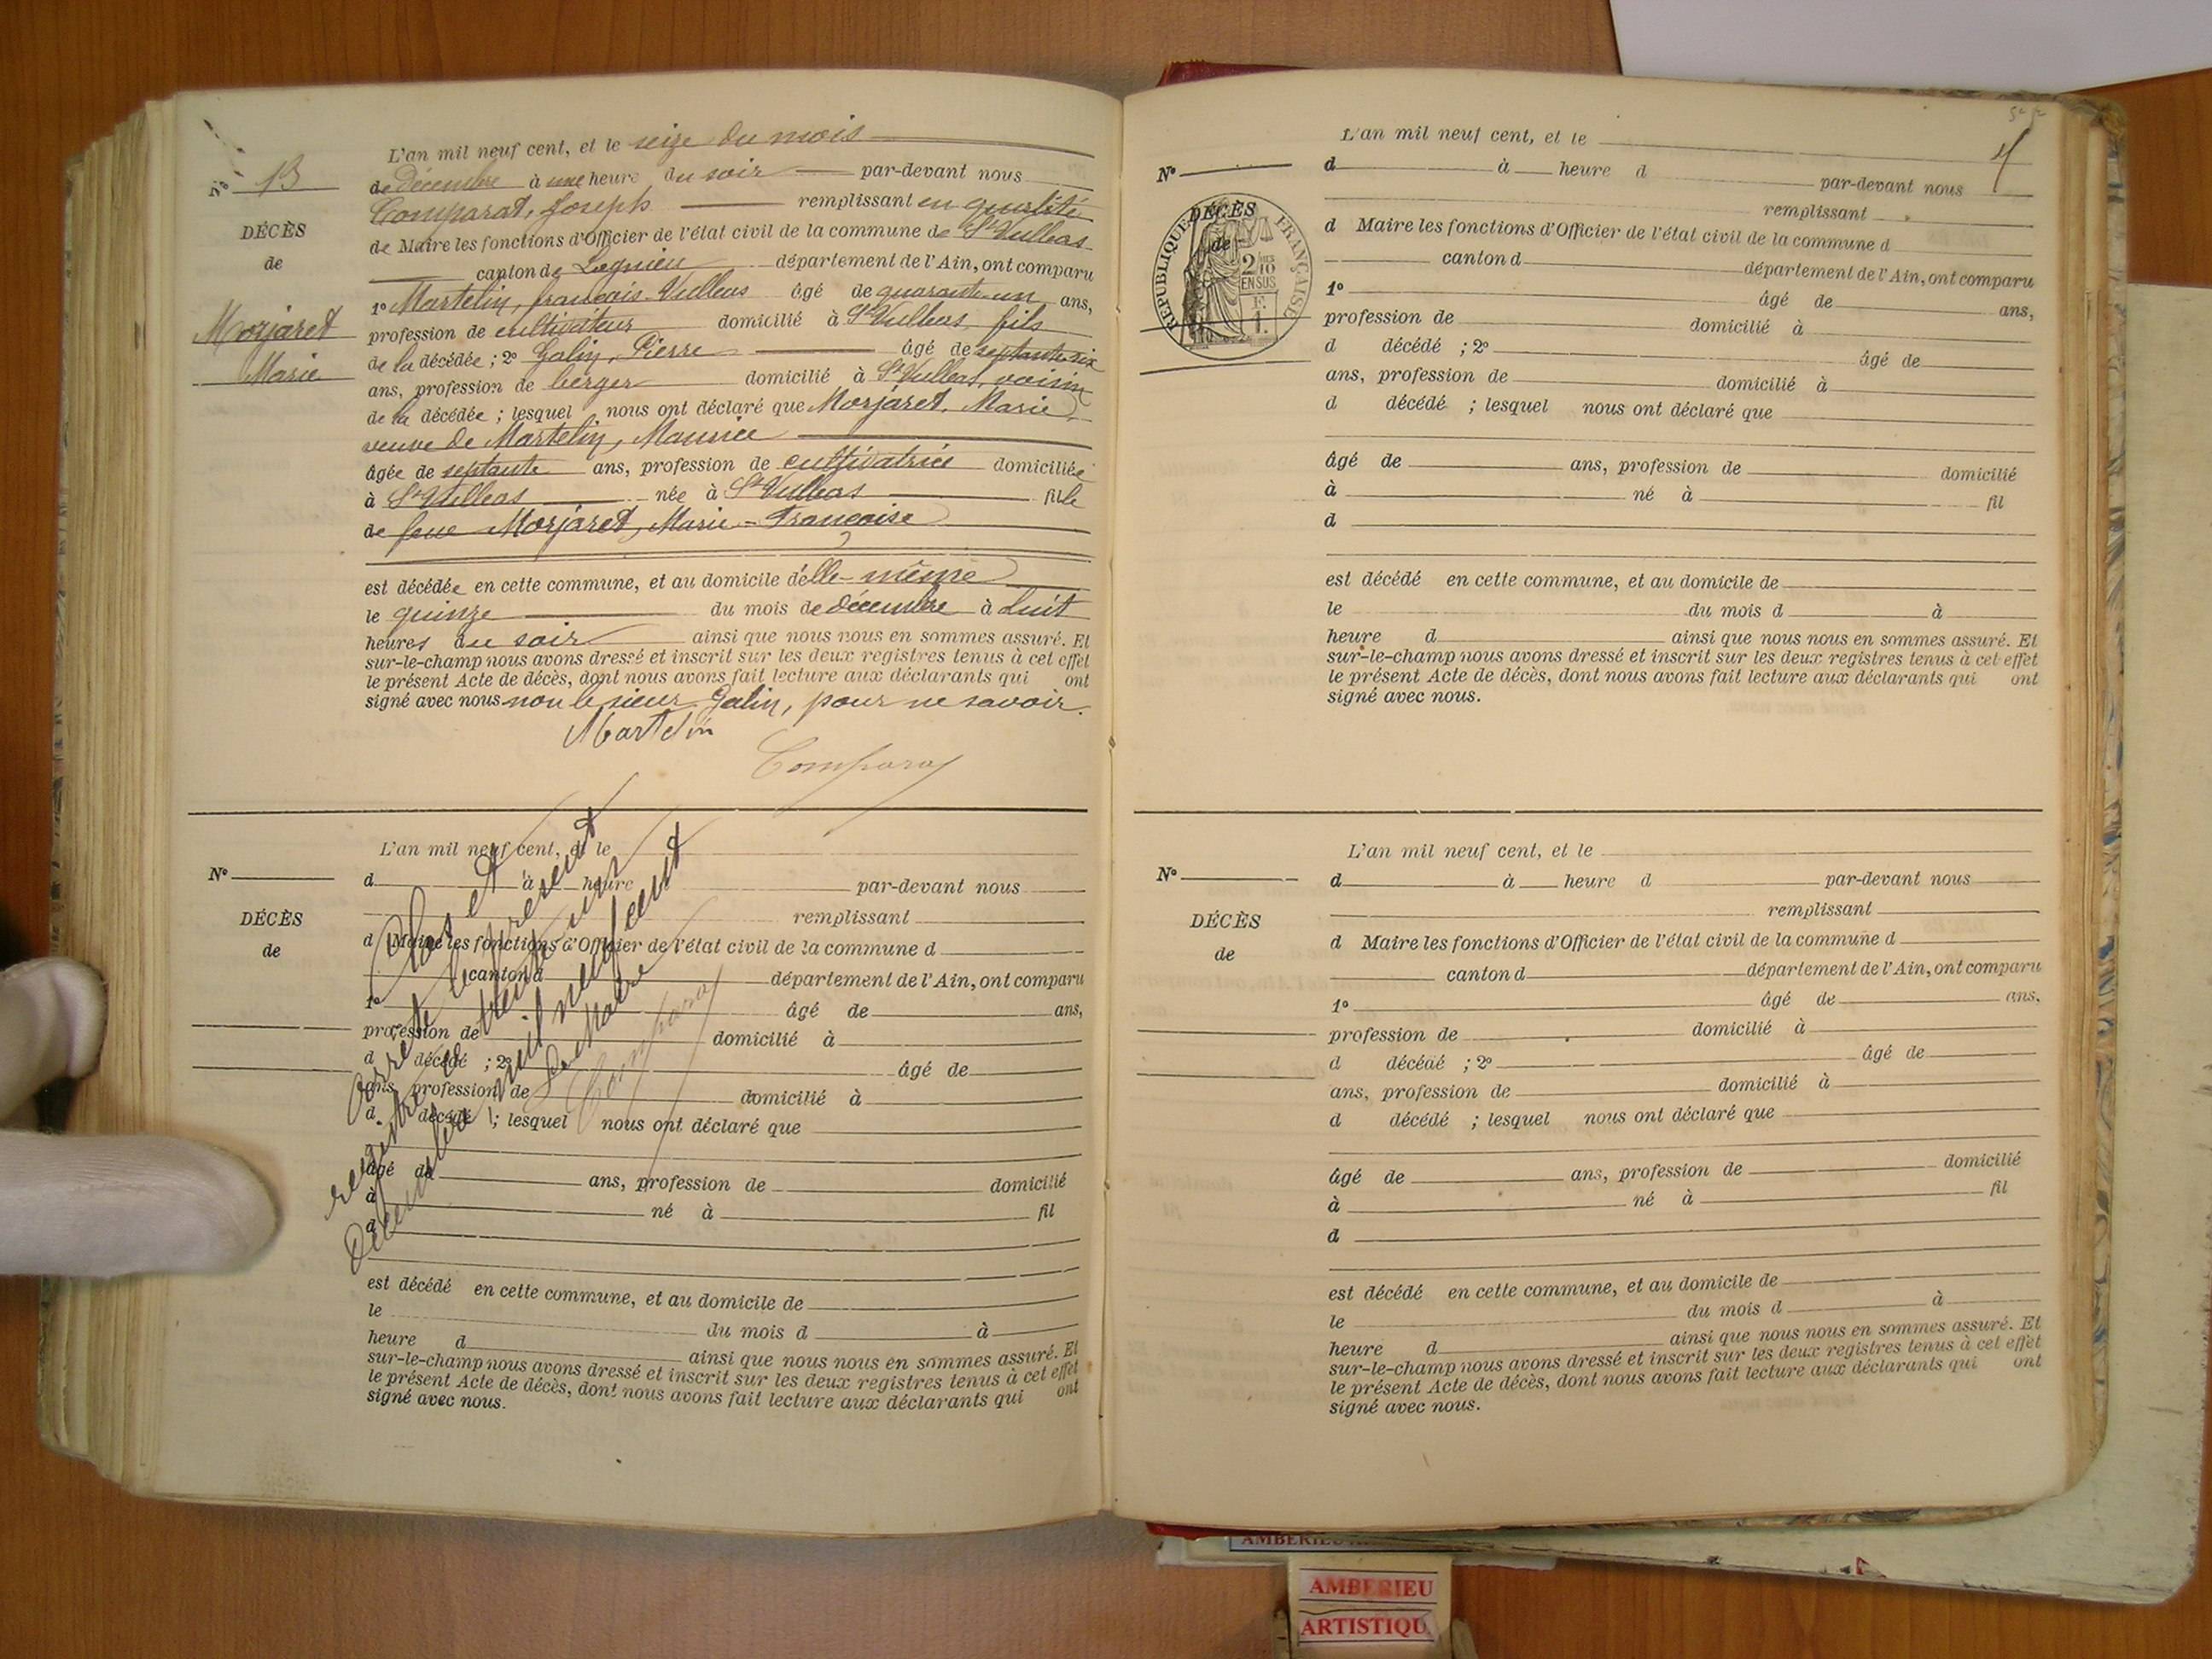 L'an mil neuf cent, et le seize du mois
N° 13
de décembre à une heure du soir par-devant nous
Comparat, Joseph remplissant en qualité
DÉCÈS
de Maire les fonctions d'Officier de l'état civil de la commune de St Vulbas
de
canton de Lagnieu département de l'Ain, ont comparu
1° Martelin, français-Vulbas âgé de quarante-un ans,
Morjaret
profession de cultivateur domicilié à St Vulbas, fils
Marie
de la décédée ; 2° Galin, Pierre âgé de septante-six
ans, profession de berger domicilié à St Vulbas, voisin
de la décédée ; lesquel nous ont déclaré que Morjaret, Marie
veuve de Martelin, Maurice
âgée de septante ans, profession de cultivatrice domiciliée
à St Vulbas née à St Vulbas fille
de feue Morjaret, Marie-Françoise
est décédée en cette commune, et au domicile d'elle-même
le quinze du mois de décembre à huit
heures du soir ainsi que nous nous en sommes assuré. Et
sur-le-champ nous avons dressé et inscrit sur les deux registres tenus à cet effet
le présent Acte de décès, dont nous avons fait lecture aux déclarants qui ont
signé avec nous non le sieur Galin, pour ne savoir.
Martelin
Comparat
L'an mil neuf cent, et le
N°
d à heure par-devant nous
remplissant
DÉCÈS
d Maire les fonctions d'Officier de l'état civil de la commune d
de
canton d département de l'Ain, ont comparu
1° âgé de ans,
profession de domicilié à
d décédé ; 2° âgé de
ans, profession de domicilié à
d décédé ; lesquel nous ont déclaré que
âgé de ans, profession de domicilié
à né à fil
d
est décédé en cette commune, et au domicile de
le du mois d à
heure d ainsi que nous nous en sommes assuré. Et
sur-le-champ nous avons dressé et inscrit sur les deux registres tenus à cet effet
le présent Acte de décès, dont nous avons fait lecture aux déclarants qui ont
signé avec nous.
Clos et
arrêté le présent
registre le trente un
Décembre mil neuf cent
Le Maire
Comparat
4
L'an mil neuf cent, et le
N°
d à heure d par-devant nous
remplissant
DÉCÈS
de
RÉPUBLIQUE FRANÇAISE
2/10
EN SUS
F.
1.
d Maire les fonctions d'Officier de l'état civil de la commune d
canton d département de l'Ain, ont comparu
1° âgé de ans,
profession de domicilié à
d décédé ; 2° âgé de
ans, profession de domicilié à
d décédé ; lesquel nous ont déclaré que
âgé de ans, profession de domicilié
à né à fil
d
est décédé en cette commune, et au domicile de
le du mois d à
heure d ainsi que nous nous en sommes assuré. Et
sur-le-champ nous avons dressé et inscrit sur les deux registres tenus à cet effet
le présent Acte de décès, dont nous avons fait lecture aux déclarants qui ont
signé avec nous.
L'an mil neuf cent, et le
N°
d à heure d par-devant nous
remplissant
DÉCÈS
d Maire les fonctions d'Officier de l'état civil de la commune d
de
canton d département de l'Ain, ont comparu
1° âgé de ans,
profession de domicilié à
d décédé ; 2° âgé de
ans, profession de domicilié à
d décédé ; lesquel nous ont déclaré que
âgé de ans, profession de domicilié
à né à fil
d
est décédé en cette commune, et au domicile de
le du mois d à
heure d ainsi que nous nous en sommes assuré. Et
sur-le-champ nous avons dressé et inscrit sur les deux registres tenus à cet effet
le présent Acte de décès, dont nous avons fait lecture aux déclarants qui ont
signé avec nous.
AMBERIEU
AMBERIEU
ARTISTIQU